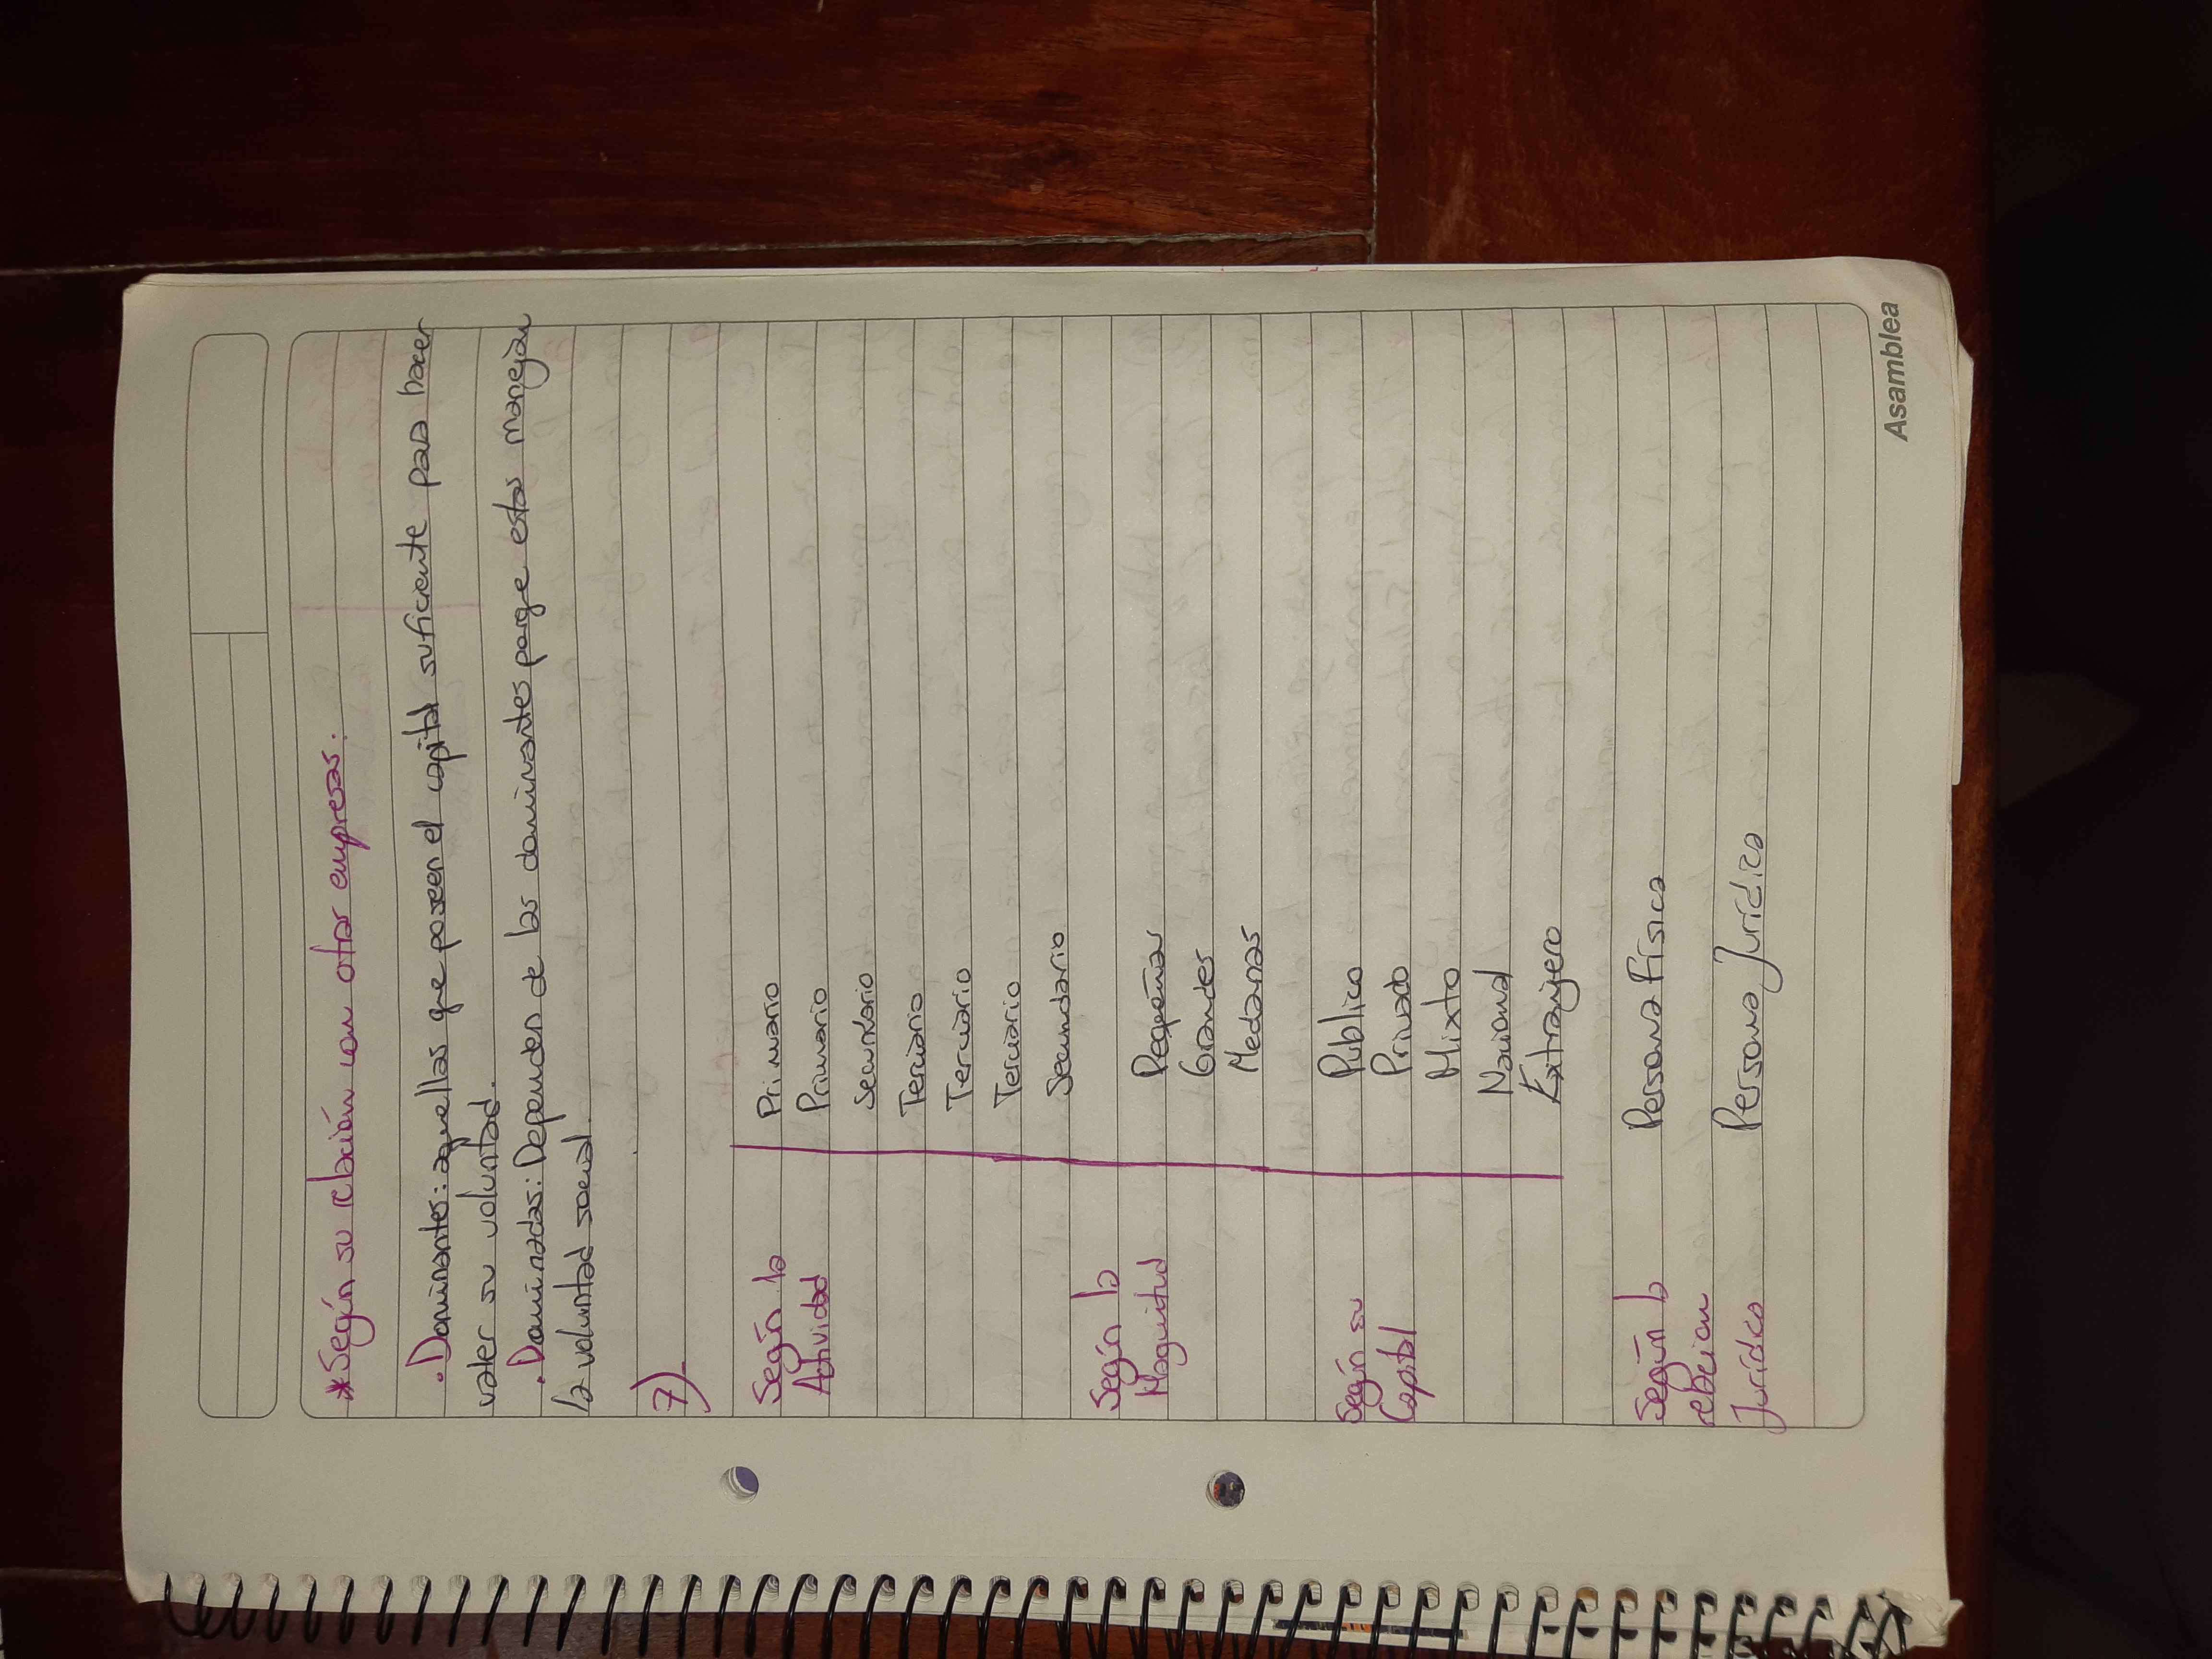 *Según su relación con otras empresas.
.Dominantes: aquellas que poseen el capital suficiente para hacer
valer su voluntad.
.Dominadas: Dependen de las dominantes porqe estas manejan
la voluntad social.
7)
Según la Primario
Actividad Primario
Secundario
Terciario
Terciario
Terciario
Secundario
Según la Pequeñas
Magnitud Grandes
Medianas
Según su Público
Capital Privado
Mixto
Nacional
Extranjero
Según la Persona Física
relacion
Jurídica Persona Jurídica
Asamblea